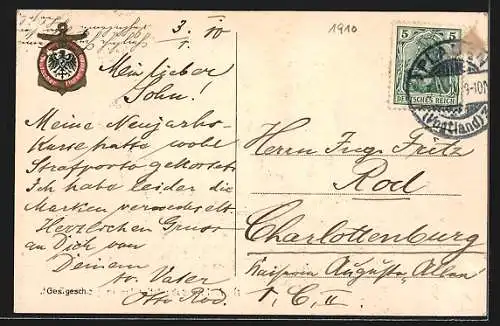 3. 10
1.
1910
Mein lieber
Sohn!
Meine Neujahrs-
Karte hatte wohl
Strafporto gekostet
Ich habe leider die
Marken verwechselt
Herzlichen Gruss
an Dich von
Deinem
tr. Vater
Otto Rod.
Ges. gesch.
5 5
DEUTSCHES REICH
PLAUEN
9-10
(Vogtland)
Herrn Ingr Fritz
Rod
Charlottenburg
Kaiserin Augusta Allee